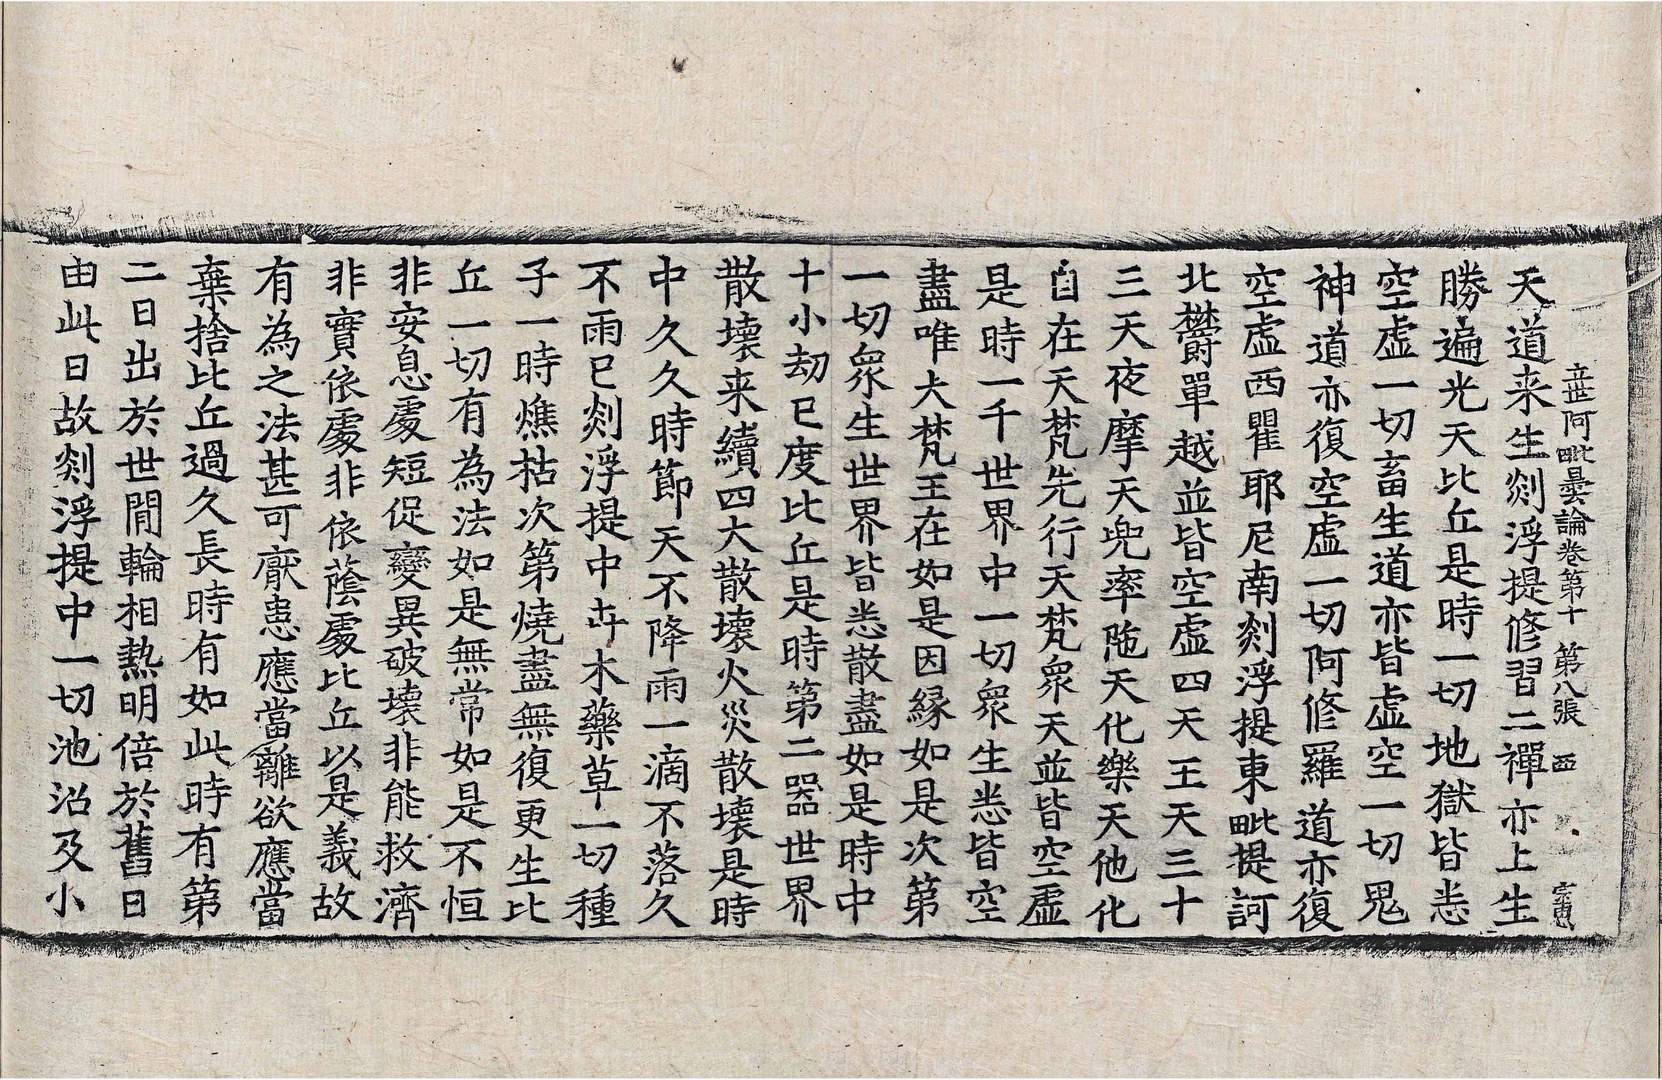 立世阿毗曇論卷第十　第八張　西
天道来生剡浮提修習二禪亦上生
勝遍光天比丘是時一切地獄皆悉
空虛一切畜生道亦皆虛空一切鬼
神道亦復空虛一切阿修羅道亦復
空虛西瞿耶尼南剡浮提東毗提訶
北欝單越並皆空虛四天王天三十
三天夜摩天兜率陁天化樂天他化
自在天梵先行天梵衆天並皆空虛
是時一千世界中一切衆生悉皆空
盡唯大梵王在如是因緣如是次第
一切衆生世界皆悉散盡如是時中
十小劫已度比丘是時第二器世界
散壞来續四大散壞火災散壞是時
中久久時節天不降雨一滴不落久
不雨已剡浮提中卉木藥草一切種
子一時燋枯次第燒盡無復更生比
丘一切有為法如是無常如是不恒
非安息處短促變異破壞非能救濟
非實依處非依蔭處比丘以是義故
有為之法甚可猒患應當離欲應當
棄捨比丘過久長時有如此時有第
二日出於世閒輪相熱明倍於舊日
由此日故剡浮提中一切池沼及小